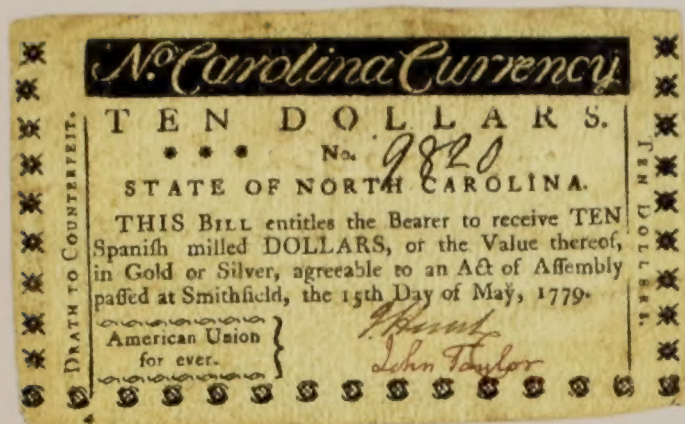 No. Carolina Currency
TEN DOLLARS.
No. 9820
STATE OF NORTH CAROLINA.
THIS BILL entitles the Bearer to receive TEN
Spaniſh milled DOLLARS, or the Value thereof,
in Gold or Silver, agreeable to an Act of Aſſembly
paſſed at Smithfield, the 15th Day of May, 1779.
American Union
for ever.
John Taylor
DEATH TO COUNTERFEIT.
TEN DOLLARS.